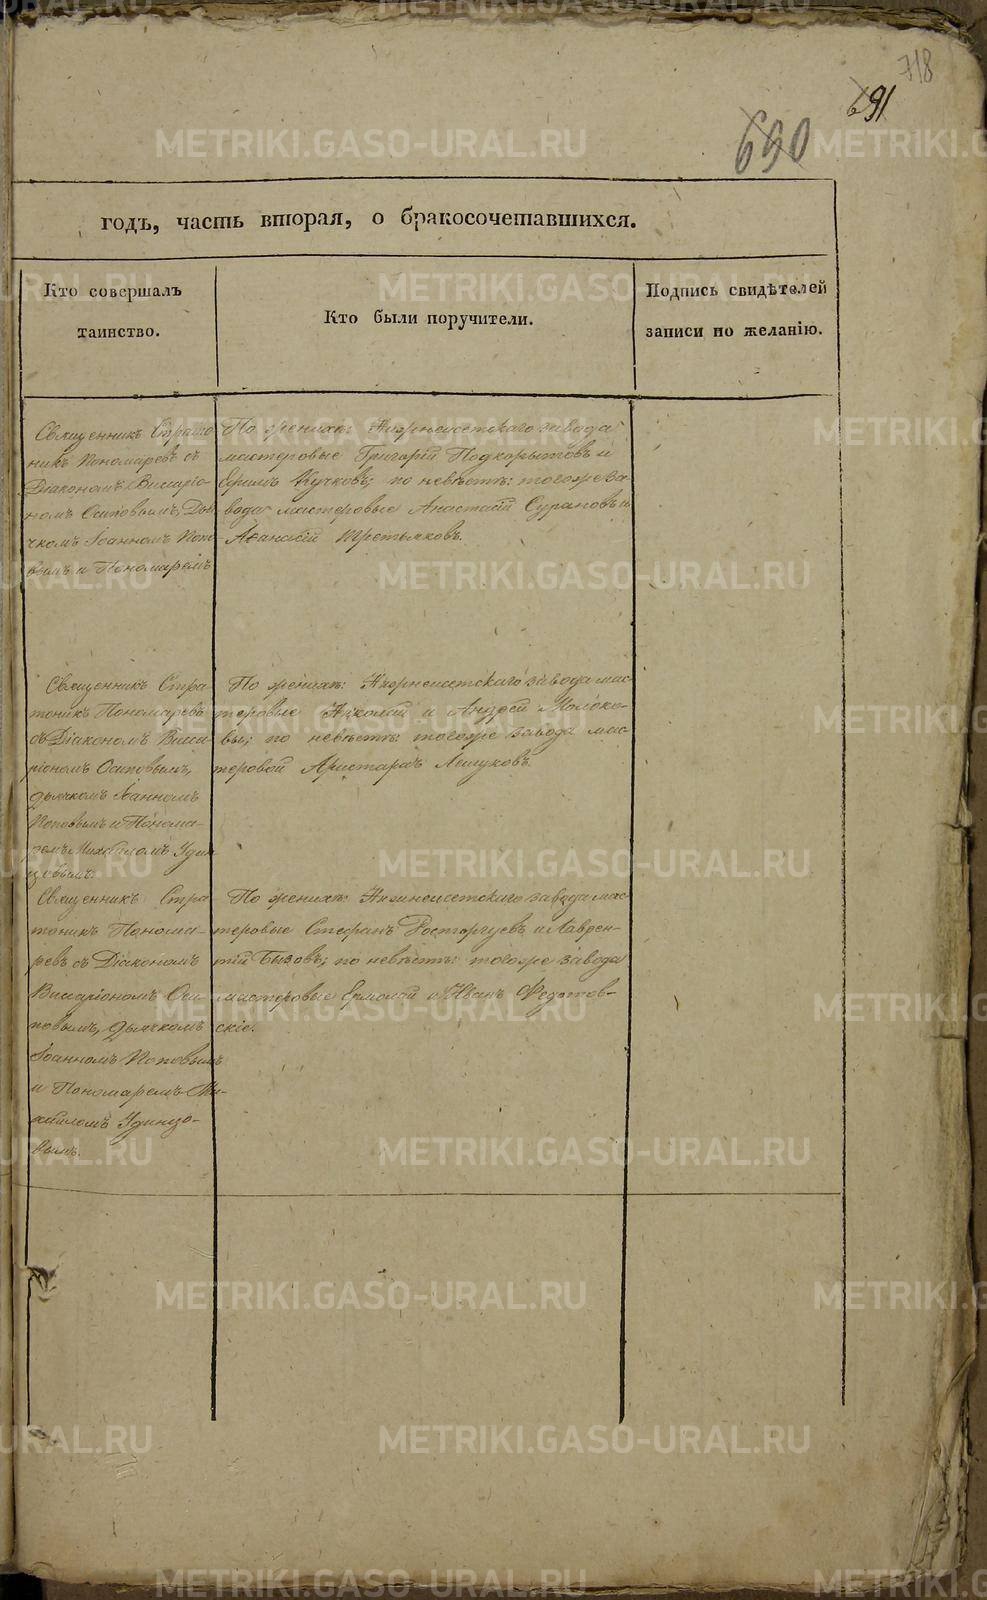 718
691
690
годъ, часть вторая, о бракосочетавшихся.
Кто совершалъ
таинство.
Кто были поручители.
Подпись свидѣтелей
записи по желанію.
Священникъ Страто-
никъ Пономаревъ съ
Діакономъ Виссаріо-
номъ Осиповымъ, Дья-
чкомъ Іоанномъ Попо-
вымъ и Пономаремъ
По женихѣ: Нижнеисетскаго завода
мастеровые Григорій Подкорытовъ и
Ефимъ Кучковъ; по невѣстѣ: тогоже за-
вода мастеровые Анастасій Сурановъ и
Афанасій Третьяковъ.
Священникъ Стра-
тоникъ Пономаревъ
съ Діакономъ Висса-
ріономъ Осиповымъ,
дьячкомъ Іоанномъ
Поповымъ и Понома-
ремъ Михаиломъ Удин-
цовымъ.
По женихѣ: Нижнеисетскаго завода мас-
теровые Николай и Андрей Молоко-
вы; по невѣстѣ: тогоже завода мас-
теровой Аристархъ Лешуковъ.
Священникъ Стра-
тоникъ Понома-
ревъ съ Діакономъ
Виссаріономъ Оси-
повымъ, дьячкомъ
Іоанномъ Поповымъ
и Пономаремъ Ми-
хаиломъ Удинцо-
вымъ.
По женихѣ: Нижнеисетскаго завода мас-
теровые Стефанъ Росторгуевъ и Лаврен-
тій Бызовъ; по невѣстѣ: тогоже завода
мастеровые Ермолай и Иванъ Федотов-
скіе.
METRIKI.GASO-URAL.RU